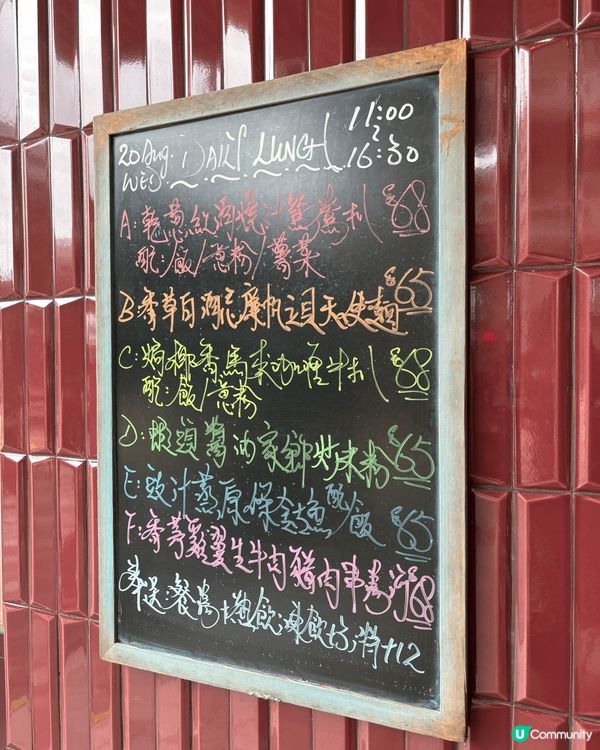 20 Aug. DAILY LUNCH 11:00
WED. ~ 16:30
A: 乾蔥紅酒燒汁鴛鴦扒 $68
配:飯/意粉/薯菜
B: 香草白酒忌廉帆立貝天使麵 $65
C: 椰香馬來咖喱牛扒 $68
配:飯/意粉
D: 頭醬油家鄉炒米粉 $65
E: 豉汁蒸原條 配飯 $65
F: 香茅雞翼生牛肉豬肉串 $68
奉送:餐湯+熱飲,凍飲 +12
U Community